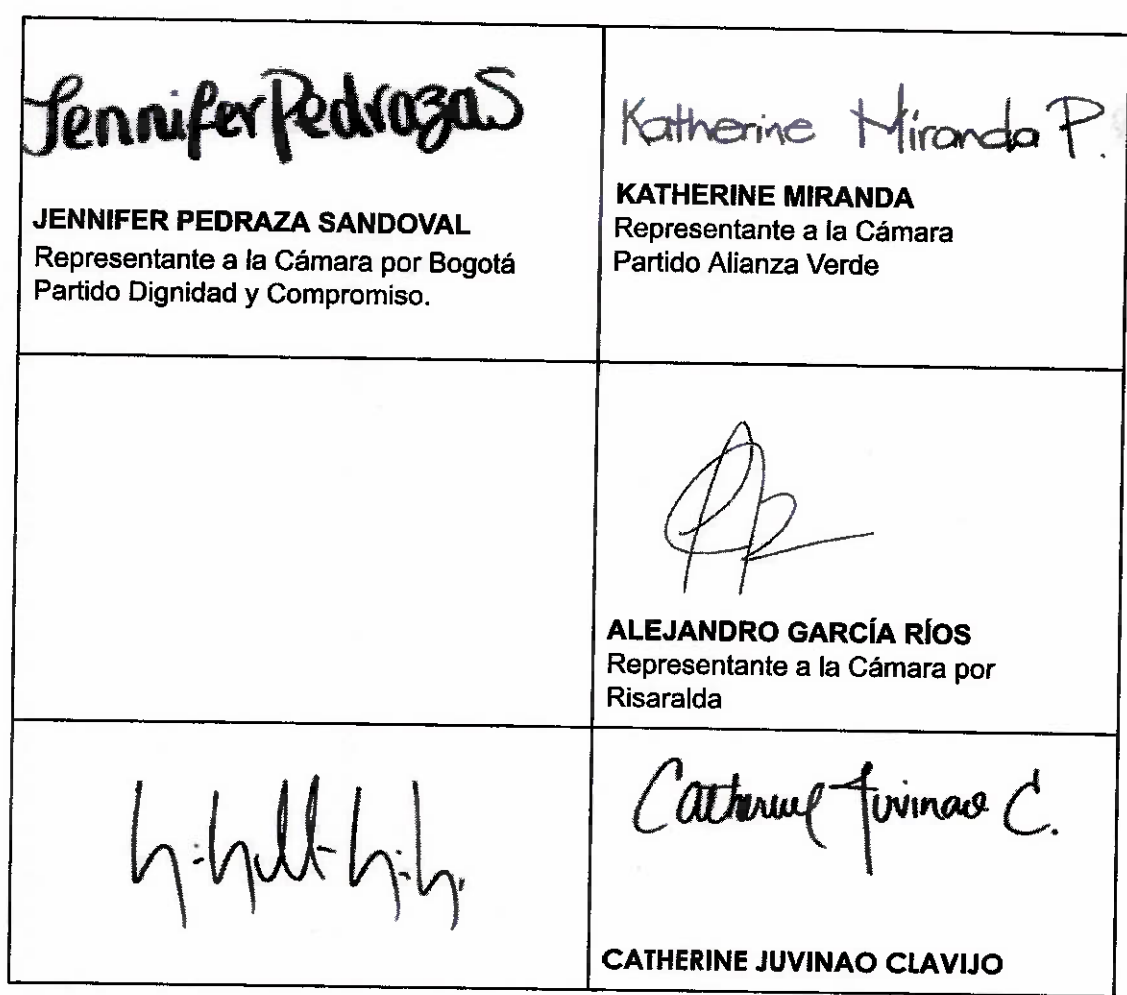 Jennifer Pedraza S
JENNIFER PEDRAZA SANDOVAL
Representante a la Cámara por Bogotá
Partido Dignidad y Compromiso.
Katherine Miranda P.
KATHERINE MIRANDA
Representante a la Cámara
Partido Alianza Verde
ALEJANDRO GARCÍA RÍOS
Representante a la Cámara por
Risaralda
Catherine Juvinao C.
CATHERINE JUVINAO CLAVIJO